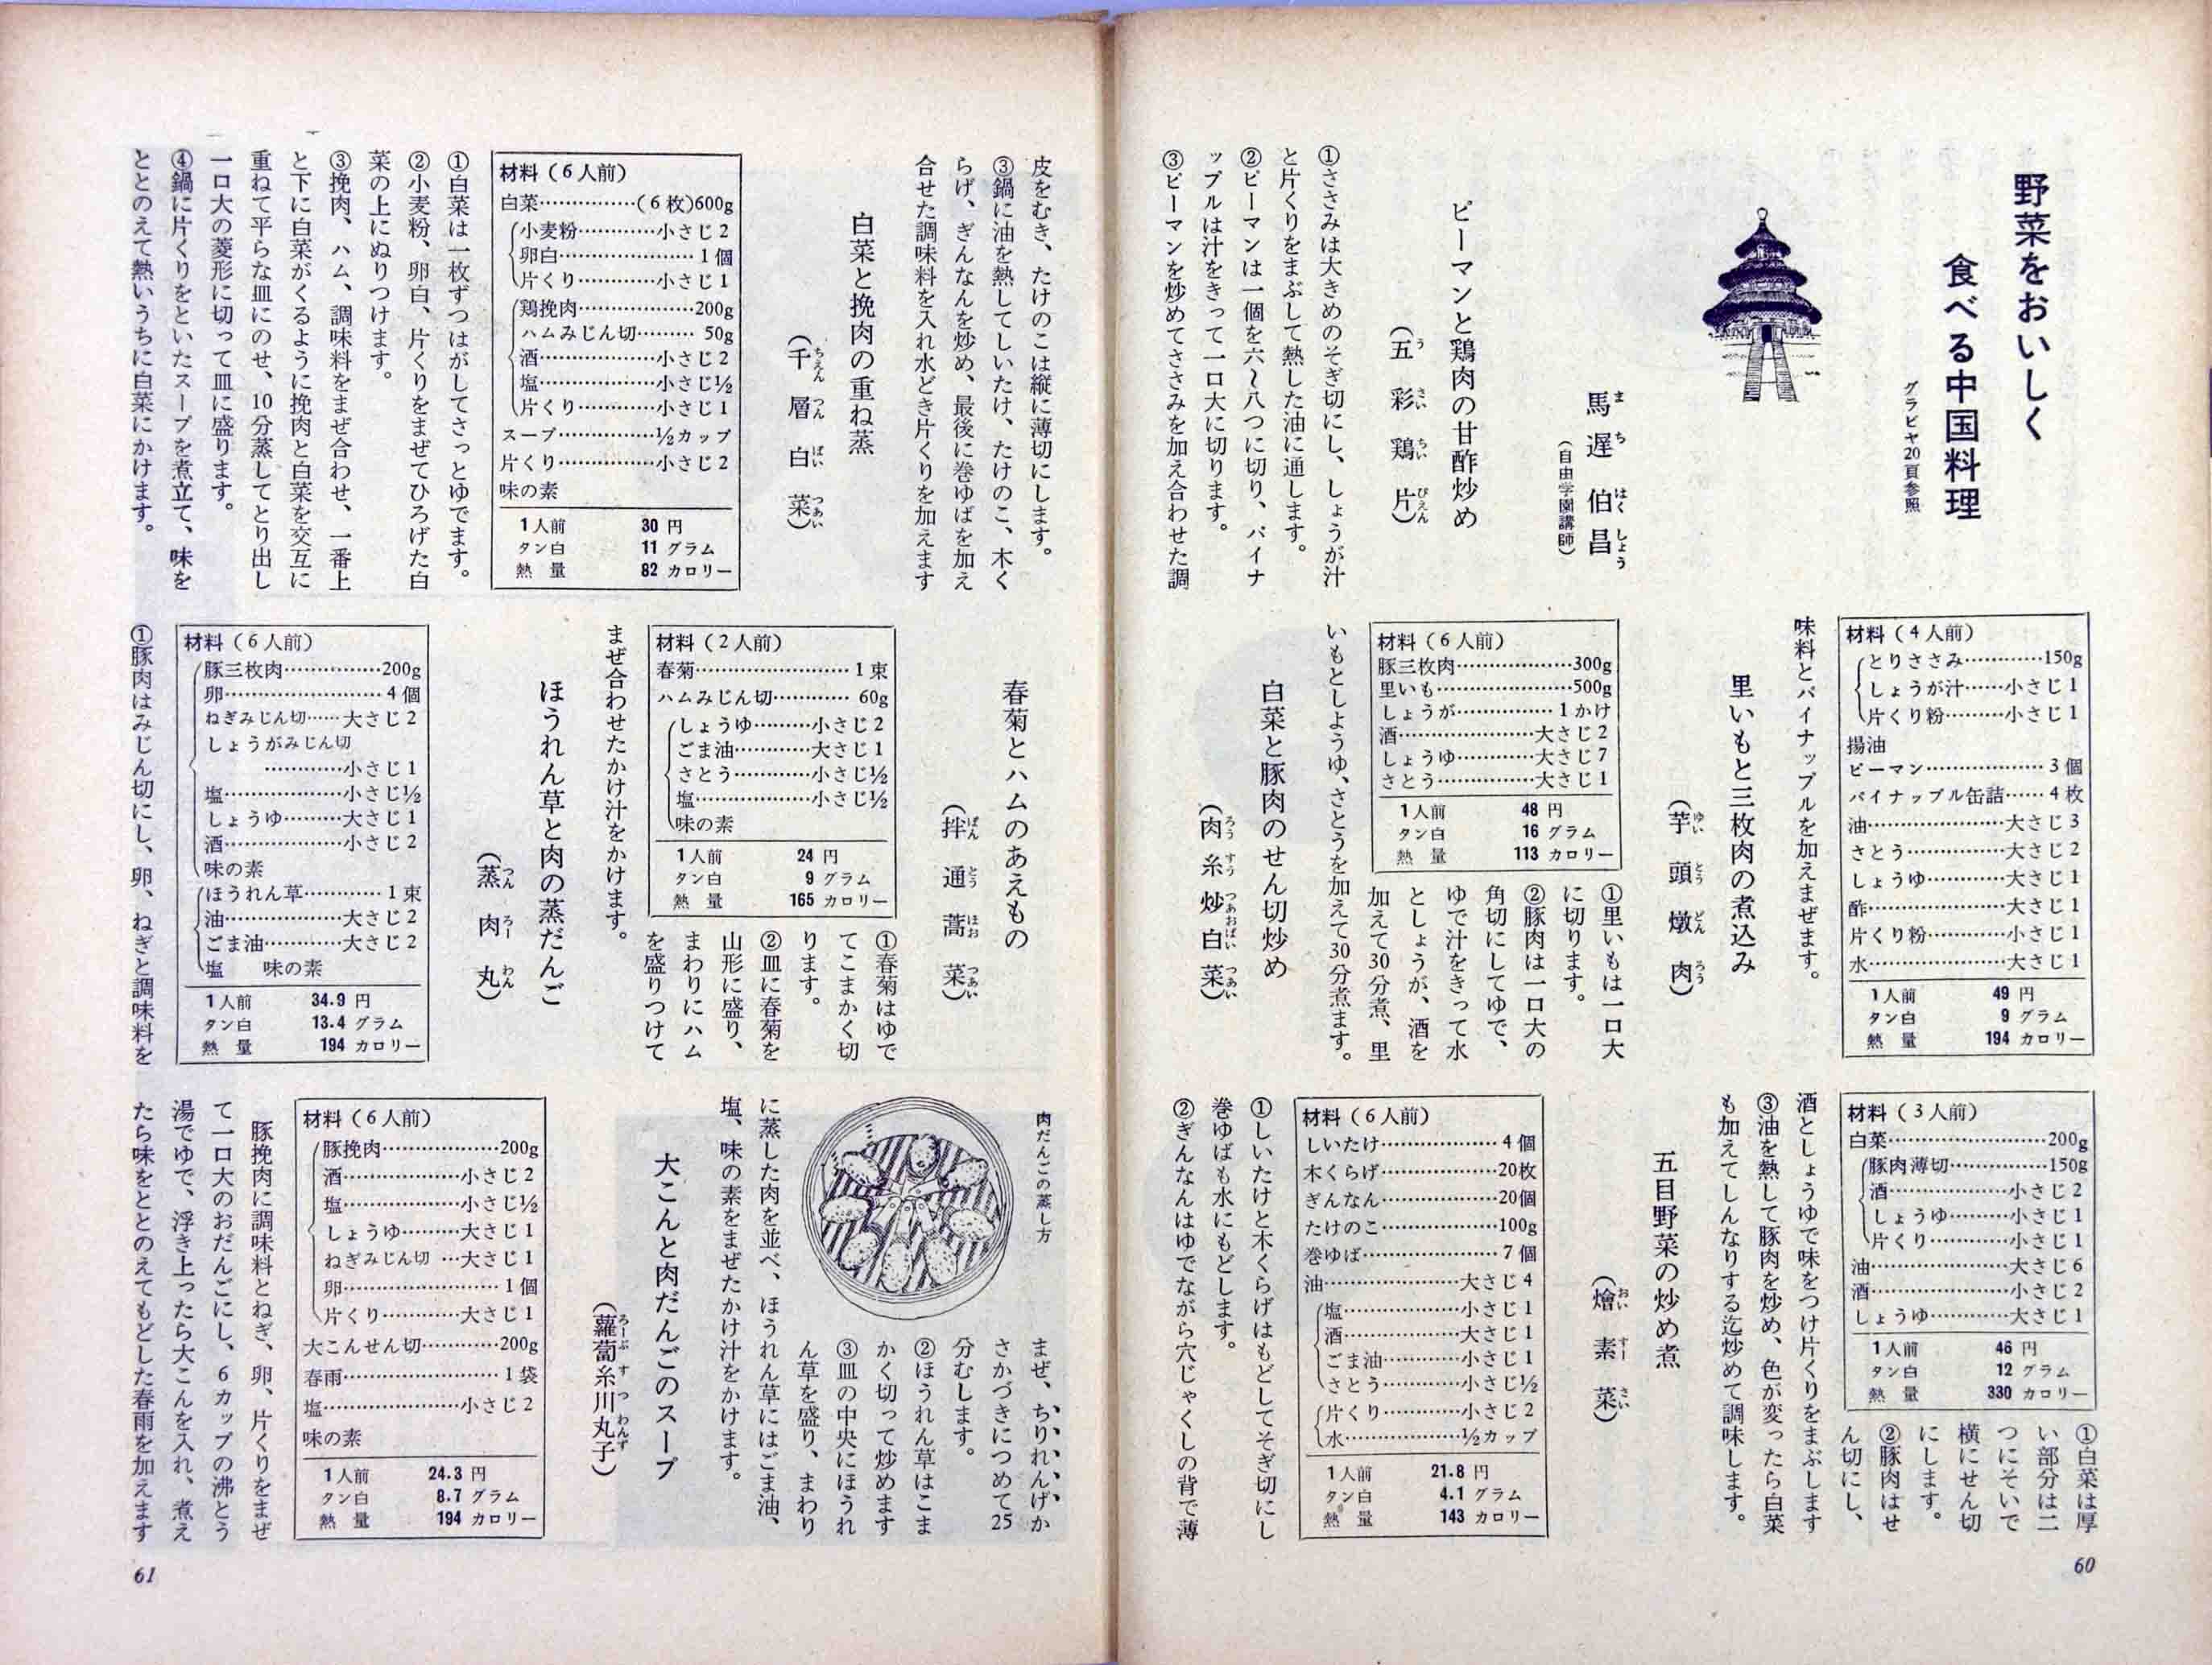 野菜をおいしく
食べる中国料理
グラビヤ20頁参照
馬遅伯昌
ま ち はく しょう
(自由学園講師)
ピーマンと鶏肉の甘酢炒め
(五彩鶏片)
う さい ちい ぴえん
①ささみは大きめのそぎ切にし、しょうが汁
と片くりをまぶして熱した油に通します。
②ピーマンは一個を六〜八つに切り、パイナ
ップルは汁をきって一口大に切ります。
③ピーマンを炒めてささみを加え合わせた調
材料(4人前)
とりささみ…………150g
しょうが汁……小さじ1
片くり粉………小さじ1
揚油
ピーマン………………3個
パイナップル缶詰……4枚
油…………………大さじ3
さとう……………大さじ2
しょうゆ…………大さじ1
酢…………………大さじ1
片くり粉…………小さじ1
水…………………大さじ1
1人前 49円
タン白 9グラム
熱量 194カロリー
味料とパイナップルを加えまぜます。
里いもと三枚肉の煮込み
(芋頭燉肉)
ゆい とう どん ろう
材料(6人前)
豚三枚肉………………300g
里いも…………………500g
しょうが……………1かけ
酒…………………大さじ2
しょうゆ…………大さじ7
さとう……………大さじ1
1人前 48円
タン白 16グラム
熱量 113カロリー
①里いもは一口大
に切ります。
②豚肉は一口大の
角切にしてゆで、
ゆで汁をきって水
としょうが、酒を
加えて30分煮、里
いもとしようゆ、さとうを加えて30分煮ます。
白菜と豚肉のせん切炒め
(肉糸炒白菜)
ろう すう つぁおばい つあい
材料(3人前)
白菜……………………200g
豚肉薄切……………150g
酒…………………小さじ2
しょうゆ…………小さじ1
片くり……………小さじ1
油…………………大さじ6
酒…………………小さじ2
しょうゆ…………大さじ1
1人前 46円
タン白 12グラム
熱量 330カロリー
①白菜は厚
い部分は二
つにそいで
横にせん切
にします。
②豚肉はせ
ん切にし、
酒としょうゆで味をつけ片くりをまぶします
③油を熱して豚肉を炒め、色が変ったら白菜
も加えてしんなりする迄炒めて調味します。
五目野菜の炒め煮
(燴素菜)
おい すー さい
材料(6人前)
しいたけ………………4個
木くらげ………………20枚
ぎんなん………………20個
たけのこ………………100g
巻ゆば…………………7個
油…………………大さじ4
塩…………………小さじ1
酒…………………大さじ1
ごま油……………小さじ1
さとう……………小さじ½
片くり……………小さじ2
水…………………½カップ
1人前 21.8円
タン白 4.1グラム
熱量 143カロリー
①しいたけと木くらげはもどしてそぎ切にし
巻ゆばも水にもどします。
②ぎんなんはゆでながら穴じゃくしの背で薄
60
皮をむき、たけのこは縦に薄切にします。
③鍋に油を熱してしいたけ、たけのこ、木く
らげ、ぎんなんを炒め、最後に巻ゆばを加え
合せた調味料を入れ水どき片くりを加えます
白菜と挽肉の重ね蒸
(千層白菜)
ちえん つん ばい つあい
材料(6人前)
白菜……………(6枚)600g
小麦粉…………小さじ2
卵白…………………1個
片くり…………小さじ1
鶏挽肉………………200g
ハムみじん切………50g
酒…………………小さじ2
塩…………………小さじ½
片くり……………小さじ1
スープ……………½カップ
片くり……………小さじ2
味の素
1人前 30円
タン白 11グラム
熱量 82カロリー
①白菜は一枚ずつはがしてさっとゆでます。
②小麦粉、卵白、片くりをまぜてひろげた白
菜の上にぬりつけます。
③挽肉、ハム、調味料をまぜ合わせ、一番上
と下に白菜がくるように挽肉と白菜を交互に
重ねて平らな皿にのせ、10分蒸してとり出し
一口大の菱形に切って皿に盛ります。
④鍋に片くりをといたスープを煮立て、味を
ととのえて熱いうちに白菜にかけます。
春菊とハムのあえもの
(拌通蒿菜)
ばん とう ほお つあい
材料(2人前)
春菊……………………1束
ハムみじん切…………60g
しょうゆ………小さじ2
ごま油…………大さじ1
さとう…………小さじ½
塩………………小さじ½
味の素
1人前 24円
タン白 9グラム
熱量 165カロリー
①春菊はゆで
てこまかく切
ります。
②皿に春菊を
山形に盛り、
まわりにハム
を盛りつけて
まぜ合わせたかけ汁をかけます。
ほうれん草と肉の蒸だんご
(蒸肉丸)
つん ろー わん
材料(6人前)
豚三枚肉……………200g
卵……………………4個
ねぎみじん切……大さじ2
しょうがみじん切
…………小さじ1
塩…………………小さじ½
しょうゆ…………大さじ1
酒…………………小さじ2
味の素
ほうれん草…………1束
油…………………大さじ2
ごま油……………大さじ2
塩 味の素
1人前 34.9円
タン白 13.4グラム
熱量 194カロリー
①豚肉はみじん切にし、卵、ねぎと調味料を
肉だんごの蒸し方
まぜ、ちりれんげか
さかづきにつめて25
分むします。
②ほうれん草はこま
かく切って炒めます
③皿の中央にほうれ
ん草を盛り、まわり
に蒸した肉を並べ、ほうれん草にはごま油、
塩、味の素をまぜたかけ汁をかけます。
大こんと肉だんごのスープ
(蘿蔔糸川丸子)
ろーぶ す つ わんず
材料(6人前)
豚挽肉………………200g
酒…………………小さじ2
塩…………………小さじ½
しょうゆ…………大さじ1
ねぎみじん切…大さじ1
卵……………………1個
片くり……………大さじ1
大こんせん切…………200g
春雨……………………1袋
塩…………………小さじ2
味の素
1人前 24.3円
タン白 8.7グラム
熱量 194カロリー
豚挽肉に調味料とねぎ、卵、片くりをまぜ
て一口大のおだんごにし、6カップの沸とう
湯でゆで、浮き上ったら大こんを入れ、煮え
たら味をととのえてもどした春雨を加えます
61